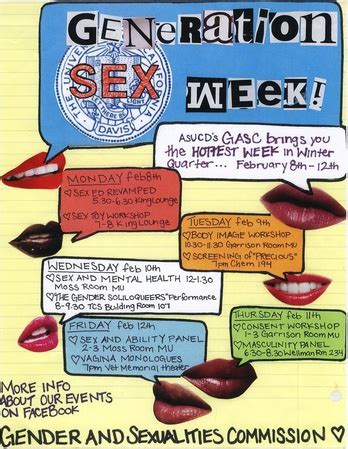 GENERATION
SEX WEEK!
THE UNIVERSITY OF CALIFORNIA
DAVIS
ASUCD's GASC brings you
the HOTTEST WEEK in Winter
Quarter... February 8th-12th
MONDAY feb 8th
♡SEX ED REVAMPED
5.30-6.30 King Lounge
♡SEX TOY WORKSHOP
7-8 King Lounge
TUESDAY feb 9th
♡BODY IMAGE WORKSHOP
10.30-11.30 Garrison Room MU
♡SCREENING of "PRECIOUS"
7pm Chem 194
WEDNESDAY feb 10th
♡SEX AND MENTAL HEALTH 12-1.30
Moss Room MU
♡THE GENDER SOLILOQUEERS' Performance
8-9.30 TCS Building Room 107
THURSDAY feb 11th
♡CONSENT WORKSHOP
1-3 Garrison Room MU
♡MASCULINITY PANEL
6:30-8.30 Wellman Rm 234
FRIDAY feb 12th
♡SEX AND ABILITY PANEL
2-3 Moss Room MU
♡VAGINA MONOLOGUES
7pm Vet Memorial theater
MORE INFO
ABOUT OUR EVENTS
ON FACEBOOK
GENDER AND SEXUALITIES COMMISSION ♡